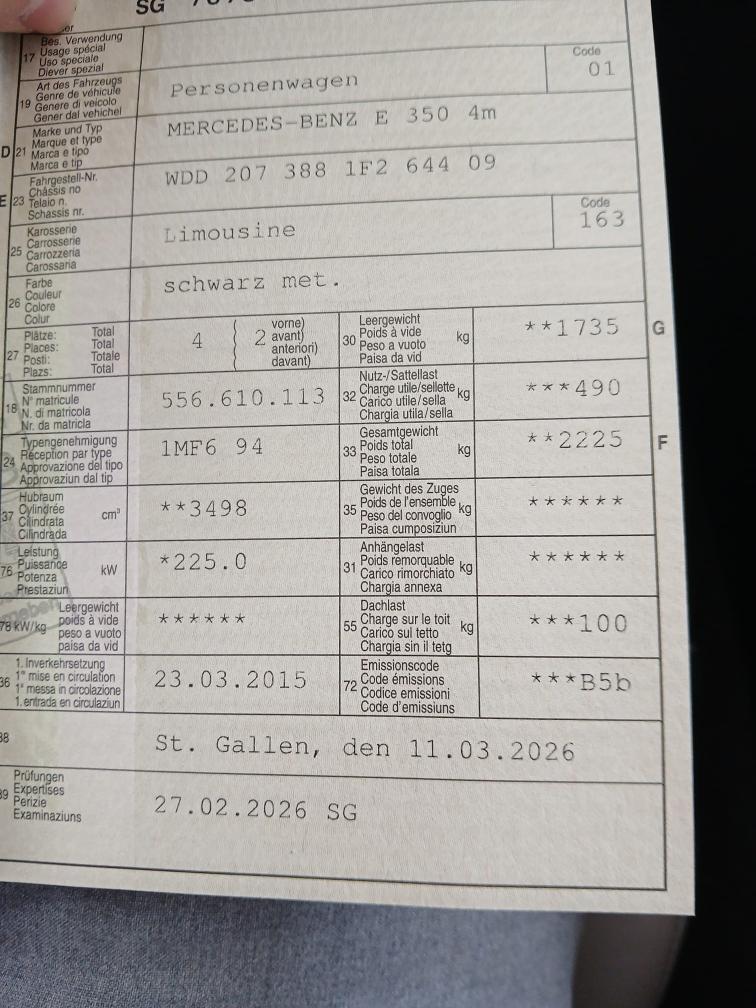 SG
Bes. Verwendung
17 Usage spécial
Uso speciale
Diever spezial
Art des Fahrzeugs
19 Genre de véhicule
Genere di veicolo
Gener dal vehichel
Personenwagen
Code
01
Marke und Typ
D 21 Marque et type
Marca e tipo
Marca e tip
MERCEDES-BENZ E 350 4m
Fahrgestell-Nr.
Châssis no
E 23 Telaio n.
Schassis nr.
WDD 207 388 1F2 644 09
Karosserie
Carrosserie
25 Carrozzeria
Carossaria
Limousine
Code
163
Farbe
26 Couleur
Colore
Colur
schwarz met.
Plätze: Total
27 Places: Total
Posti: Totale
Plazs: Total
4
2 vorne)
avant)
anteriori)
davant)
Leergewicht
30 Poids à vide kg
Peso a vuoto
Paisa da vid
**1735 G
Stammnummer
18 N° matricule
N. di matricola
Nr. da matricla
556.610.113
Nutz-/Sattellast
32 Charge utile/sellette kg
Carico utile/sella
Chargia utila/sella
***490
Typengenehmigung
24 Réception par type
Approvazione del tipo
Approvaziun dal tip
1MF6 94
Gesamtgewicht
33 Poids total kg
Peso totale
Paisa totala
**2225 F
Hubraum
37 Cylindrée cm³
Cilindrata
Cilindrada
**3498
Gewicht des Zuges
35 Poids de l'ensemble kg
Peso del convoglio
Paisa cumposiziun
******
Leistung
76 Puissance kW
Potenza
Prestaziun
*225.0
Anhängelast
31 Poids remorquable kg
Carico rimorchiato
Chargia annexa
******
Leergewicht
78 kW/kg poids à vide
peso a vuoto
paisa da vid
******
Dachlast
55 Charge sur le toit kg
Carico sul tetto
Chargia sin il tetg
***100
1. Inverkehrsetzung
36 1ᵉ mise en circulation
1ᵃ messa in circolazione
1. entrada en circulaziun
23.03.2015
Emissionscode
72 Code émissions
Codice emissioni
Code d'emissiuns
***B5b
38
St. Gallen, den 11.03.2026
Prüfungen
39 Expertises
Perizie
Examinaziuns
27.02.2026 SG